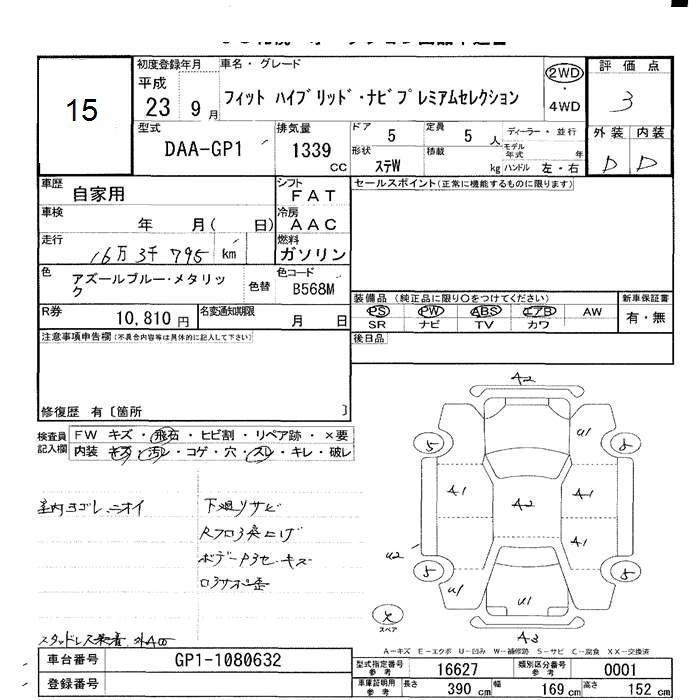 15
初度登録年月
平成
23 9月
車名・グレード
フィット ハイブリッド・ナビプレミアムセレクション
2WD
・
4WD
評価点
3
外装 内装
D D
型式
DAA-GP1
排気量
1339 CC
ドア 5
定員 5 人
形状 ステW
積載 kg
ディーラー・並行
モデル年式 年
ハンドル 左・右
車歴 自家用
シフト FAT
セールスポイント(正常に機能するものに限ります)
車検 年 月( 日)
冷房 AAC
走行 16万3千795 km
燃料 ガソリン
色 アズールブルー・メタリック
色替
色コード B568M
装備品 (純正品に限り○をつけてください)
新車保証書
PS PW ABS エアB AW
有・無
SR ナビ TV カワ
R券 10,810 円
名変通知期限 月 日
後日品
注意事項申告欄(不具合内容等は具体的に記入して下さい)
修復歴 有〔箇所 〕
検査員記入欄
FW キズ・飛石・ヒビ割・リペア跡・×要
内装 キズ・汚レ・コゲ・穴・スレ・キレ・破レ
室内ヨゴレ ニオイ
下廻リサビ
スタッドレス装着
A2
U1
5
A1
A2
A1
A1
U2
5
5
U1
U1
スペア
A3
A-キズ E-エクボ U-凹み W-補修跡 S-サビ C-腐食 XX-交換済
車台番号 GP1-1080632
登録番号
型式指定番号参考 16627
類別区分番号参考 0001
車庫証明用参考 長さ 390 cm 幅 169 cm 高さ 152 cm